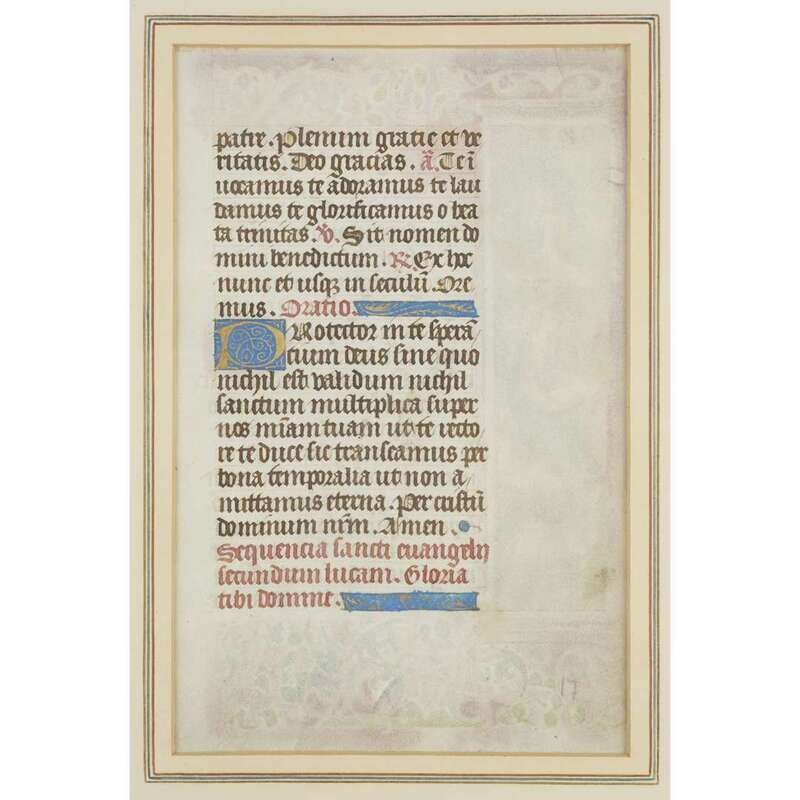 patre. Plenum gratie et ve
ritatis. Deo gracias. A̅. Te ī
uocamus te adoramus te lau
damus te glorificamus o bea
ta trinitas. ℣. Sit nomen do
mini benedictum. ℟. Ex hoc
nunc et usqꝫ in seculū. Ore
mus. Oratio.
Protector in te sperā
tium deus sine quo
nichil est validum nichil
sanctum multiplica super
nos mīam tuam ut te recto
re te duce sic transeamus per
bona temporalia ut non a
mittamus eterna. Per cristū
dominum nr̄m. Amen.
Sequencia sancti euangelij
secundum lucam. Gloria
tibi domine.
17